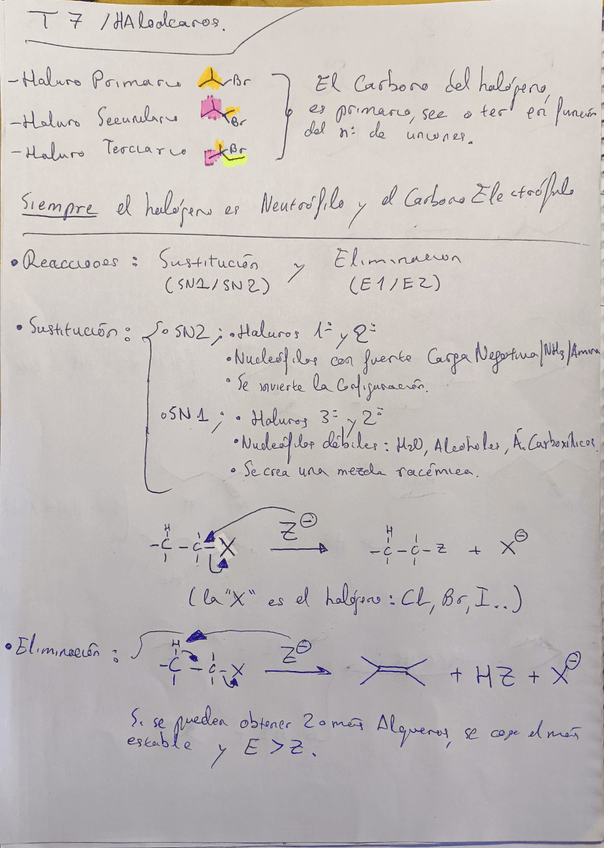 T 7 / HAlolcanos.
- Haluro Primario Br
- Haluro Secundario Br
- Haluro Terciario Br
El Carbono del halógeno,
es primario, sec o ter en función
del nº de uniones.
Siempre el halógeno es Neutrófilo y el Carbono Electrófilo
• Reacciones : Sustitución y Eliminación
(SN1/SN2) (E1/E2)
• Sustitución : SN2 ; • Haluros 1º y 2º
• Nucleófilos con fuerte Carga Negativa/NH3/Amina
• Se invierte la Configuración.
SN1 ; • Haluros 3º y 2º
• Nucleófilos débiles : H2O, Alcoholes, Á. Carboxílicos.
• Se crea una mezcla racémica.
H Z⊖ H
- C - C - X → - C - C - Z + X⊖
(la "X" es el halógeno : Cl, Br, I..)
• Eliminación : H Z⊖
- C - C - X → + HZ + X⊖
Si se pueden obtener 2 o más Alquenos, se coge el más
estable y E > Z.